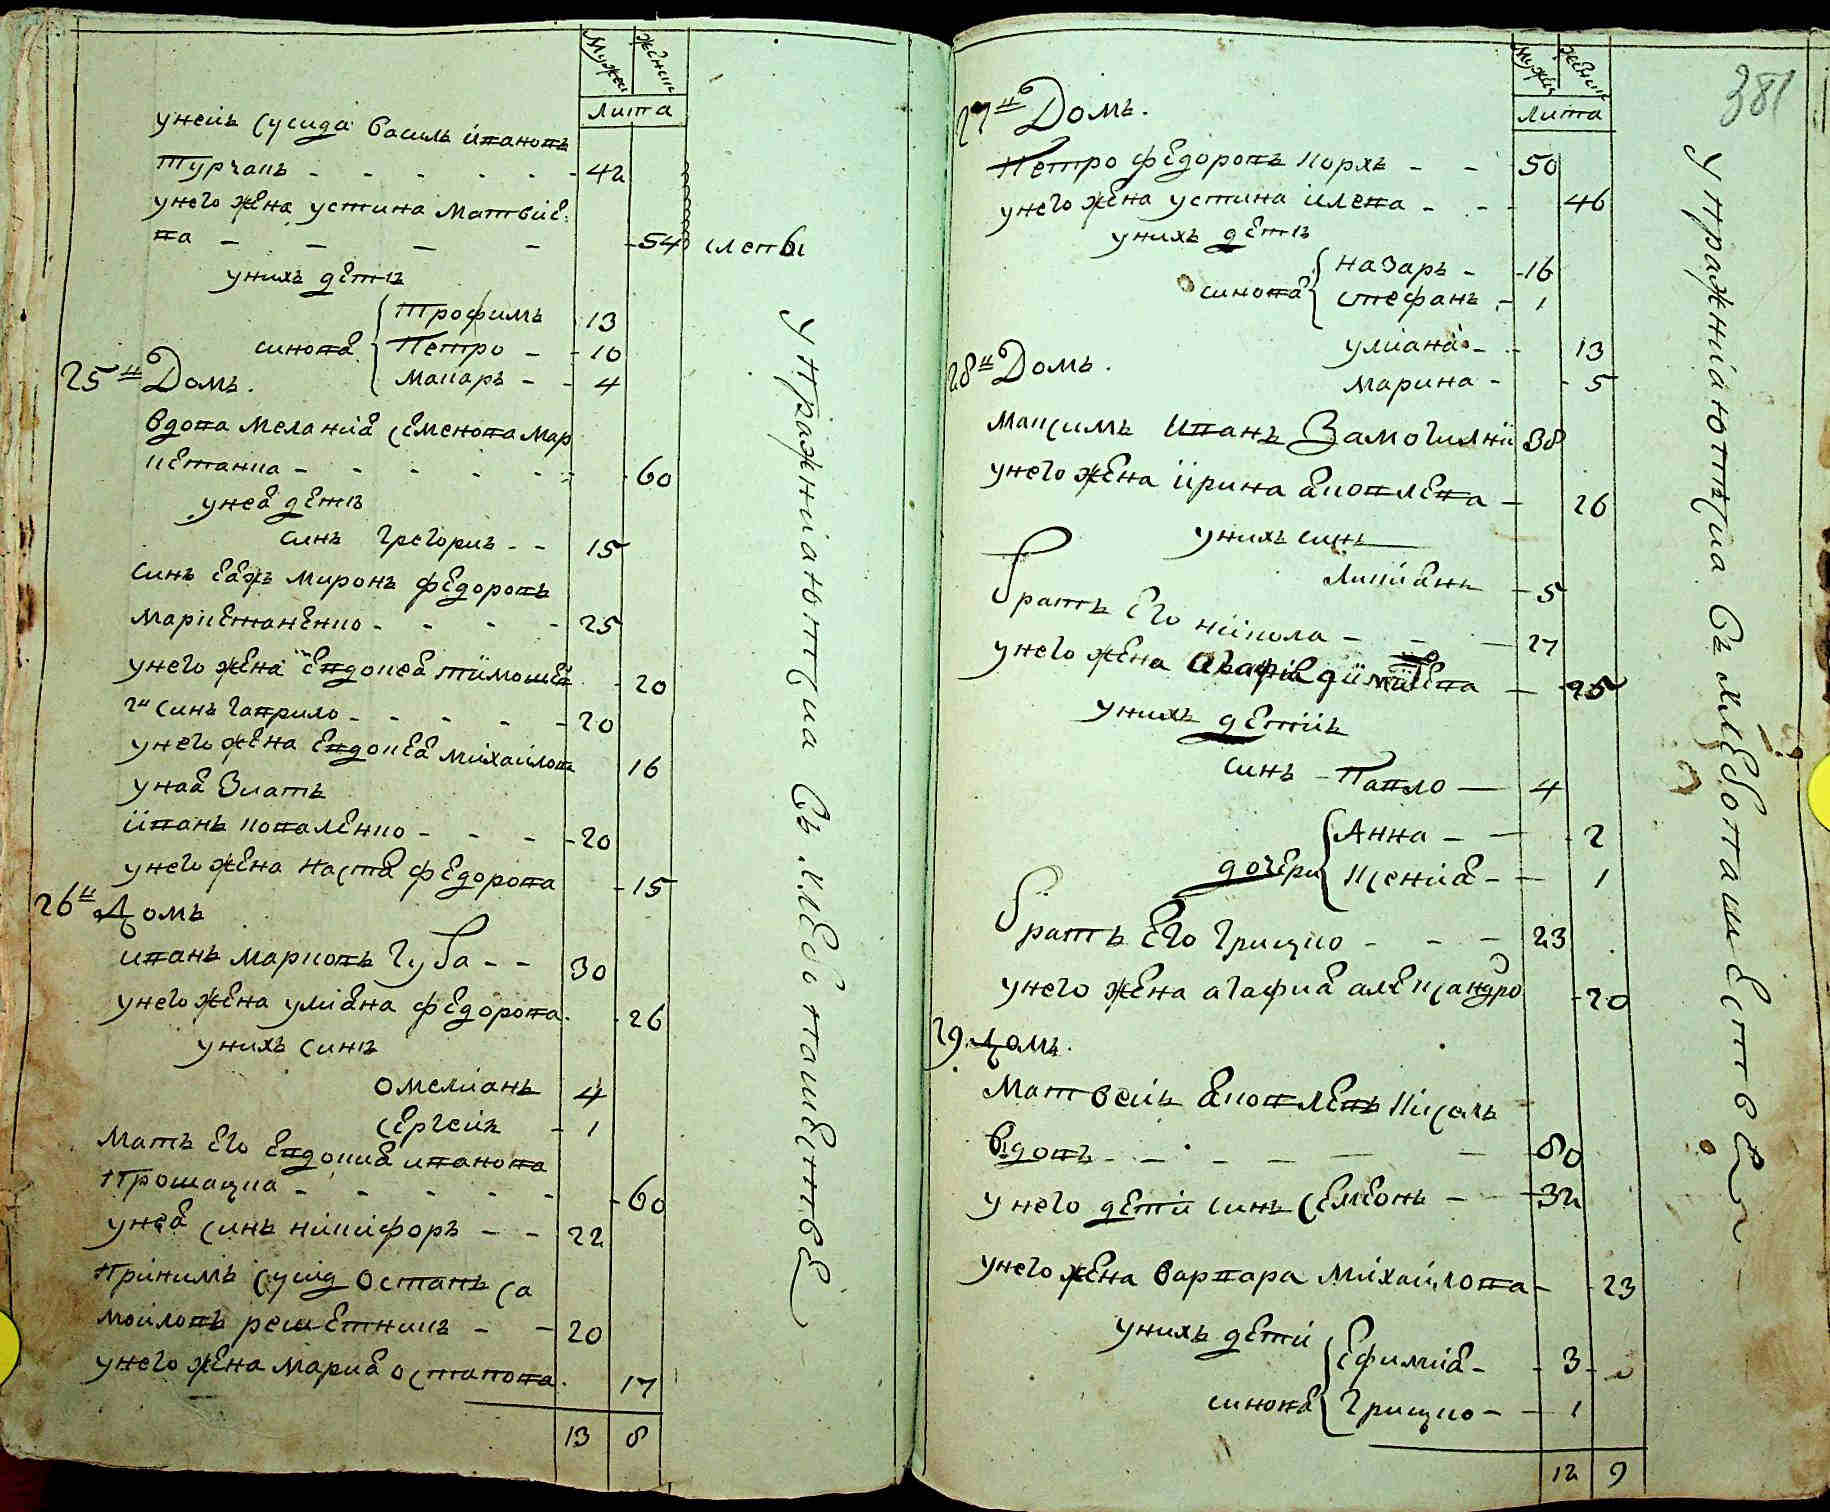 Мужеи Женски
Лита
унеиъ сусидъ василь ивановъ
Турчанъ - - - - - - 42
унего жена устина Матвие
ва - - - - 54 слепы
унихъ дети
сынова { Трофимъ 13
Петро - - 10
Макаръ - - 4
25й Домъ.
вдова Меланиѣ Семенова Мар
кетанка - - - - - 60
унеѣ дети
синъ Григорий - - 15
синъ Миронъ Федоровъ
Маркетаненко - - - - 25
унего жена Евдокеѣ Тимошее 20
2й синъ Гаврило - - - - - 20
унего жена Евдокеѣ Михайлова 16
унаѣ Зиать
Иванъ Коваленко - - - - 20
унего жена Настѣ Федорова - 15
26й Домъ
Иванъ Марковъ Губа - - 30
унего жена Улиѣна Федорова - 26
унихъ синъ
Омелианъ 4
Сергеий - 1
Матъ Его Евдокиѣ Иванова
Трошацка - - - - - 60
унеѣ синъ Никифоръ - - 22
Приимъ сусид Остапъ Са
мойловъ Решетникъ - - 20
унего жена Мариѣ Остапова 17
13 8
упражниаютца въ хлебопашестве
381
Мужеи Женски
Лита
27й Домъ.
Петро Федоровъ Коржъ - - 50
унего жена устина илева - - - 46
унихъ дети
синова { Назаръ - - 16
Стефанъ - 1
улиана - - 13
Марина - - 5
28й Домъ.
Максимъ Иванъ Замогилний 38
унего жена Ирина ѣковлева - 26
унихъ синъ
Лукиѣнъ - 5
Братъ Его Никола - - - 27
унего жена Агафиѣ - 25
унихъ детии
синъ - Павло - 4
дочери { Анна - - 2
Ксениѣ - - 1
Братъ Его Грицко - - - 23
унего жена агафиѣ александро - 20
29. Домъ.
Матвеий ѣковлевъ Кисель
вдовъ - - - - - - 80
унего дети синъ Семеонъ - - 32
унего жена варвара Михайлова - - 23
унихъ дети
синова { Ефимиѣ - - 3 -
Грицко - - 1
12 9
упражниаютца въ хлебопашестве